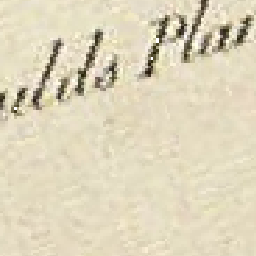 ulds Plai